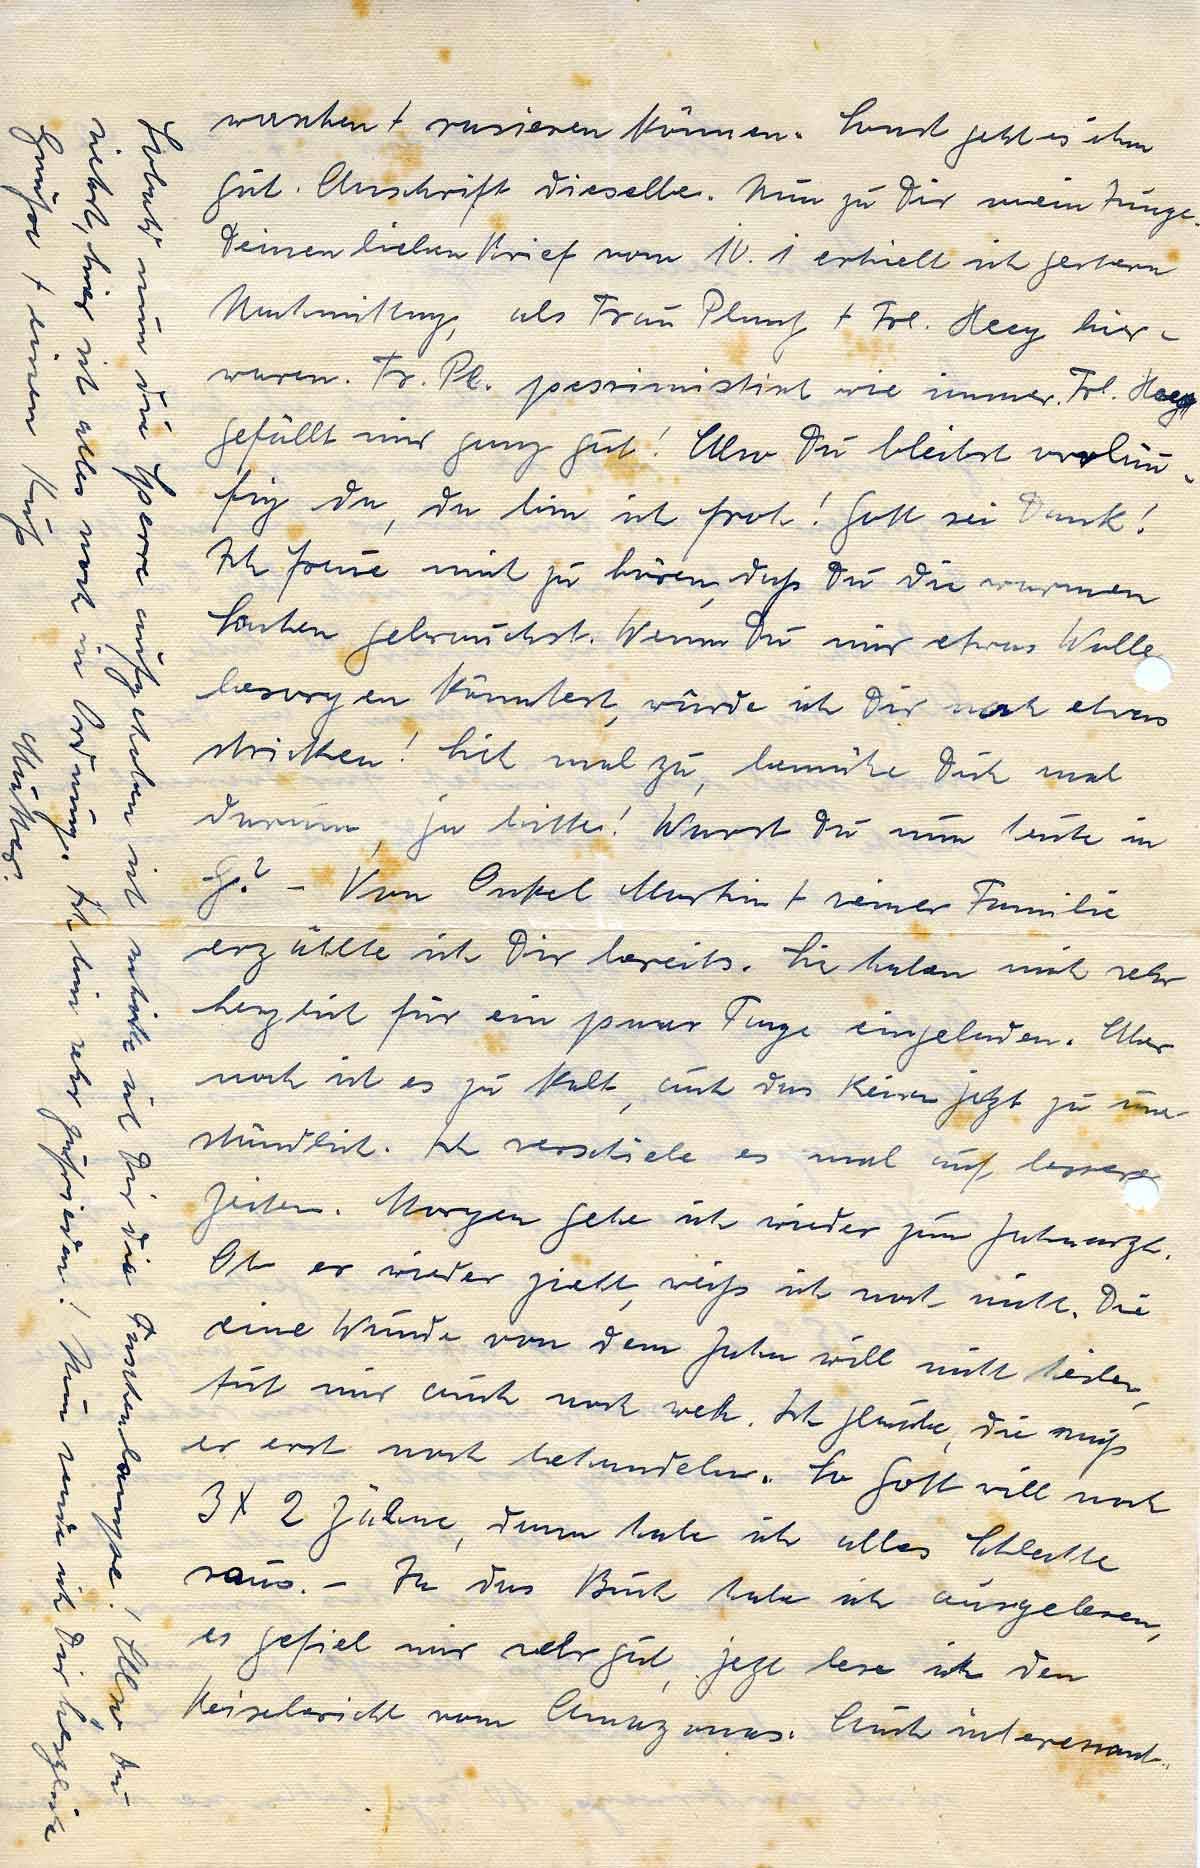 waschen + rasieren können. Sonst geht es ihm
gut. Anschrift dieselbe. Nun zu Dir mein Junge.
Deinen lieben Brief vom 10. 1 erhielt ich gestern
Nachmittag, als Frau + Frl. Heeg hier
waren. Fr. Pl. pessimistisch wie immer. Frl. Heeg
gefällt mir ganz gut! Also Du bleibst vorläu-
fig da, da bin ich froh! Gott sei Dank!
Ich freue mich zu hören, daß Du die warmen
Sachen gebrauchst. Wenn Du mir etwas Wolle
besorgen könntest, würde ich Dir noch etwas
stricken! Sieh mal zu, bemühe Dich mal
darum, ja bitte! Warst Du nun heute in
G.? – Von Onkel Martin + seiner Familie
erzählte ich Dir bereits. Sie haben mich sehr
herzlich für ein paar Tage eingeladen. Aber
noch ist es zu kalt, auch das Reisen jetzt zu um-
ständlich. Ich verschiebe es mal auf bessere
Zeiten. Morgen gehe ich wieder zum Zahnarzt.
Ob er wieder zieht, weiß ich noch nicht. Die
eine Wunde von dem Zahn will nicht heilen,
tut mir auch noch weh. Ich glaube, die muß
er erst noch behandeln. So Gott will noch
3 x 2 Zähne, dann habe ich alles Schlechte
raus. – Ja das Buch habe ich ausgelesen,
es gefiel mir sehr gut, jetzt lese ich den
Reisebericht vom Amazonas. Auch interessant.
Sobald nun die Sperre aufgehoben ist schicke ich Dir die Taschenlampe! Also Du
siehst, hier ist alles noch in Ordnung. Ich bin sehr zufrieden! Nun sende ich Dir herzliche
Grüße + einen Kuß
Mutter.